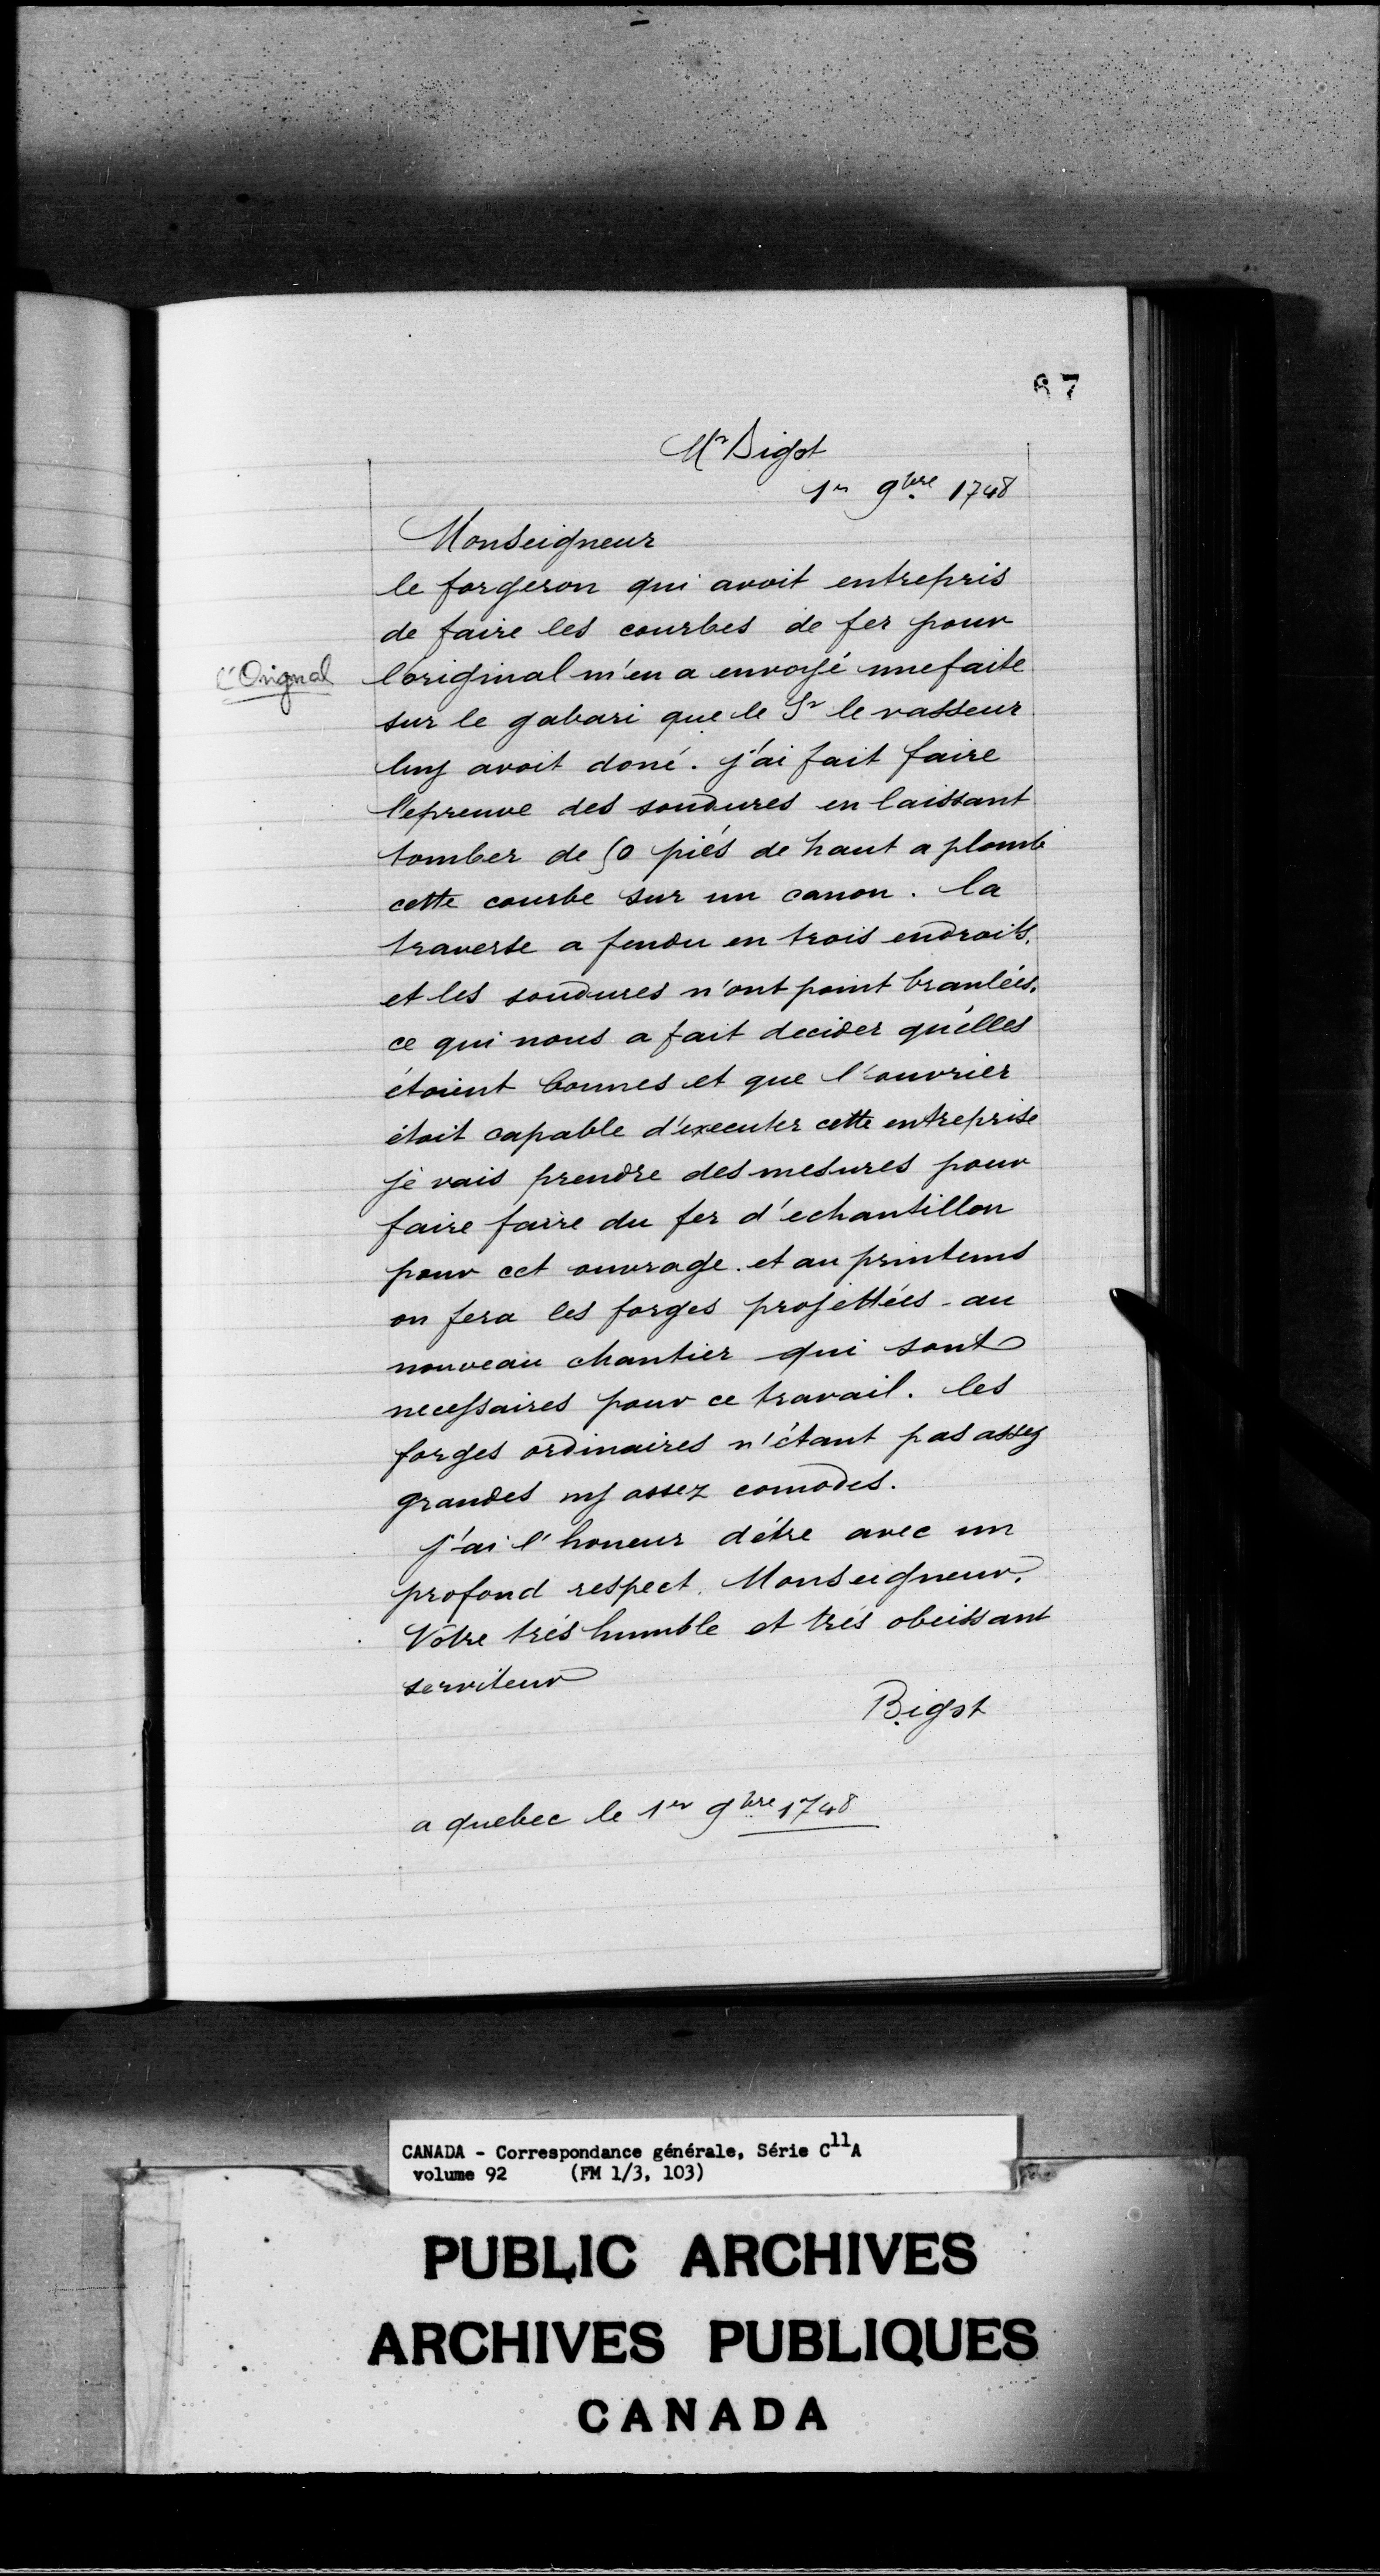 67
Mr Bigot
1er 9bre 1748
Monseigneur
le forgeron qui avoit entrepris
de faire les courbes de fer pour
L'Orignal
l'original m'en a envoyé une faite
sur le gabari que le Sr le vasseur
luy avoit doné. j'ai fait faire
l'epreuve des soudures en laissant
tomber de 50 piés de haut a plomb
cette courbe sur un canon. la
traverse a fendu en trois endroits.
et les soudures n'ont point branlées.
ce qui nous a fait decider qu'elles
étoient bonnes et que l'ouvrier
étoit capable d'executer cette entreprise
je vais prendre des mesures pour
faire faire du fer d'echantillon
pour cet ouvrage. et au printems
on fera les forges projettées - au
nouveau chantier qui sont
necessaires pour ce travail. les
forges ordinaires n'étant pas assez
grandes ny assez comodes.
j'ai l'honeur d'étre avec un
profond respect. Monseigneur.
Vótre trés humble et trés obeissant
serviteur
Bigot
a quebec le 1er 9bre 1748
CANADA - Correspondance générale, Série C11A
volume 92 (FM 1/3, 103)
PUBLIC ARCHIVES
ARCHIVES PUBLIQUES
CANADA